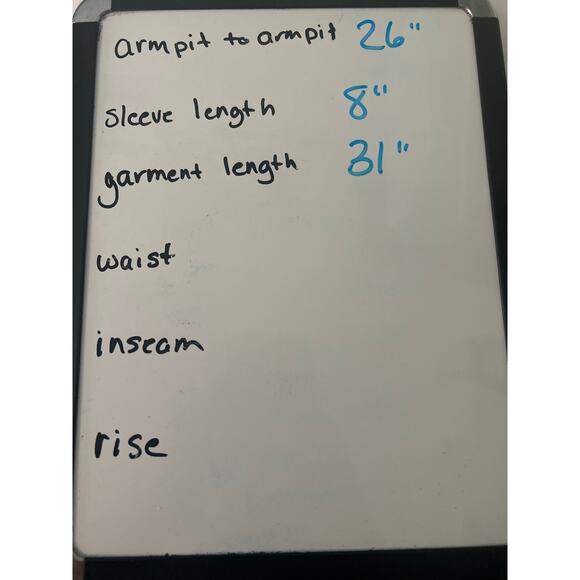 armpit to armpit 26"
sleeve length 8"
garment length 31"
waist
inseam
rise